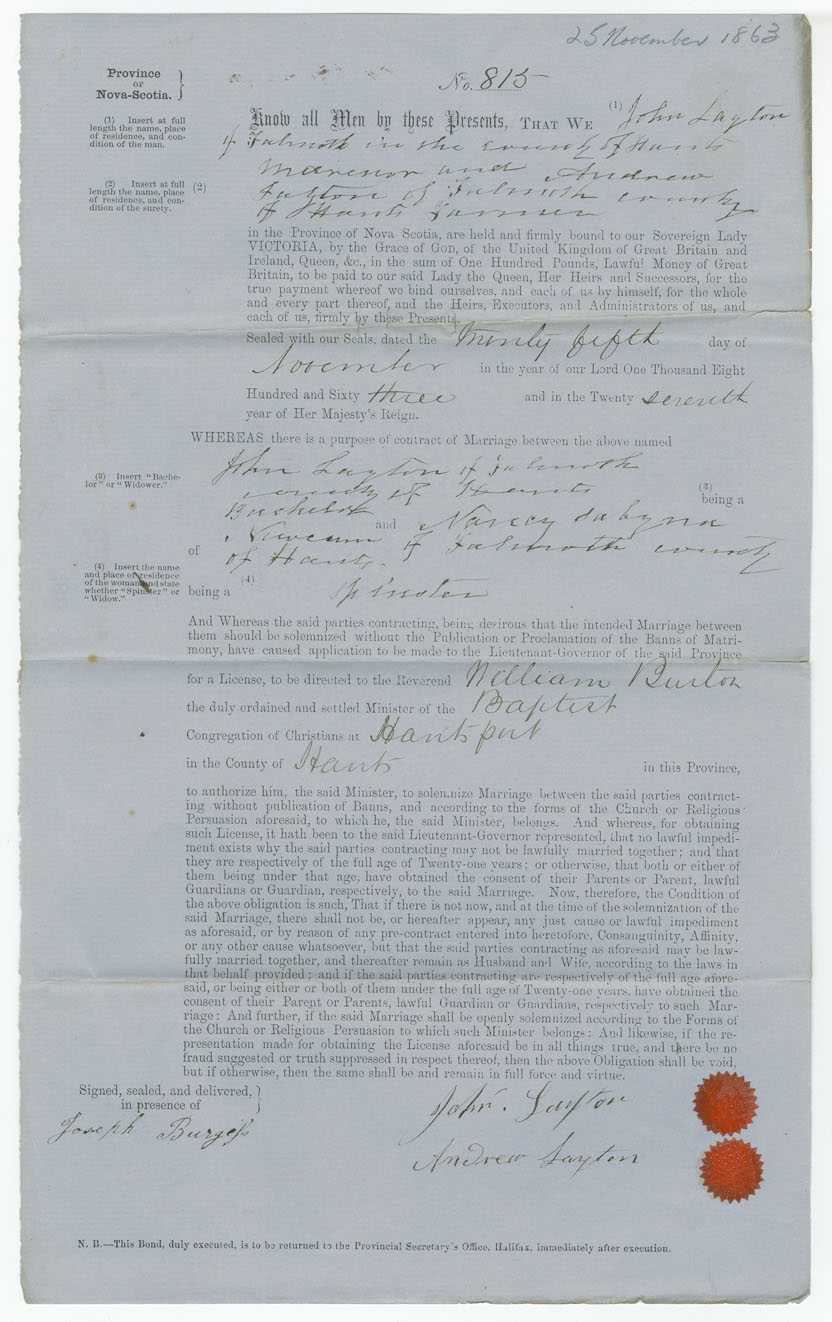 25 November 1863
Province
OF
Nova-Scotia.
No. 815
Know all Men by these Presents, THAT WE (1) John Layton
(1) Insert at full
length the name, place
of residence, and con-
dition of the man.
of Falmoth in the county of Hants
and Andrew
(2) Insert at full
length the name, place
of residence, and con-
dition of the surety.
(2)
Layton of Falmoth county
of Hants Farmer
in the Province of Nova Scotia, are held and firmly bound to our Sovereign Lady
VICTORIA, by the Grace of GOD, of the United Kingdom of Great Britain and
Ireland, Queen, &c., in the sum of One Hundred Pounds, Lawful Money of Great
Britain, to be paid to our said Lady the Queen, Her Heirs and Successors, for the
true payment whereof we bind ourselves, and each of us by himself, for the whole
and every part thereof, and the Heirs, Executors, and Administrators of us, and
each of us, firmly by these Presents.
Sealed with our Seals, dated the Twenty fifth day of
November in the year of our Lord One Thousand Eight
Hundred and Sixty three and in the Twenty seventh
year of Her Majesty's Reign.
WHEREAS there is a purpose of contract of Marriage between the above named
John Layton of Falmoth
(3) Insert "Bache-
lor" or "Widower."
county of Hants (3)
being a
Bachelor and Nancy
of of Falmoth county
of Hants.
(4) Insert the name
and place of residence
of the woman and state
whether "Spinster" or
"Widow."
(4)
being a spinster
And Whereas the said parties contracting, being desirous that the intended Marriage between
them should be solemnized without the Publication or Proclamation of the Banns of Matri-
mony, have caused application to be made to the Lieutenant-Governor of the said Province
for a License, to be directed to the Reverend William Burton
the duly ordained and settled Minister of the Baptist
Congregation of Christians at Hantsport
in the County of Hants in this Province,
to authorize him, the said Minister, to solemnize Marriage between the said parties contract-
ing without publication of Banns, and according to the forms of the Church or Religious
Persuasion aforesaid, to which he, the said Minister, belongs. And whereas, for obtaining
such License, it hath been to the said Lieutenant-Governor represented, that no lawful impedi-
ment exists why the said parties contracting may not be lawfully married together; and that
they are respectively of the full age of Twenty-one years; or otherwise, that both or either of
them being under that age, have obtained the consent of their Parents or Parent, lawful
Guardians or Guardian, respectively, to the said Marriage. Now, therefore, the Condition of
the above obligation is such, That if there is not now, and at the time of the solemnization of the
said Marriage, there shall not be, or hereafter appear, any just cause or lawful impediment
as aforesaid, or by reason of any pre-contract entered into heretofore, Consanguinity, Affinity,
or any other cause whatsoever, but that the said parties contracting as aforesaid may be law-
fully married together, and thereafter remain as Husband and Wife, according to the laws in
that behalf provided; and if the said parties contracting are respectively of the full age afore-
said, or being either or both of them under the full age of Twenty-one years, have obtained the
consent of their Parent or Parents, lawful Guardian or Guardians, respectively to such Mar-
riage: And further, if the said Marriage shall be openly solemnized according to the Forms of
the Church or Religious Persuasion to which such Minister belongs: And likewise, if the re-
presentation made for obtaining the License aforesaid be in all things true, and there be no
fraud suggested or truth suppressed in respect thereof, then the above Obligation shall be void,
but if otherwise, then the same shall be and remain in full force and virtue.
Signed, sealed, and delivered,
in presence of
Joseph Burgess
John. Layton
Andrew Layton
N. B.—This Bond, duly executed, is to be returned to the Provincial Secretary's Office, Halifax, immediately after execution.